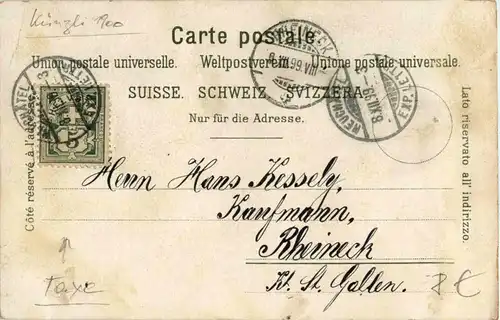 Künzli
Carte postale.
Union postale universelle. Weltpostverein. Unione postale universale.
SUISSE. SCHWEIZ. SVIZZERA.
Nur für die Adresse.
Côté réservé à l'adresse.
Lato riservato all' indirizzo.
RHEINECK
8.VIII.99.VIII
NEUCHATEL
EXP. LETTR.
5
Herrn Hans Kessely,
Kaufmann,
Rheineck
Kt. St. Gallen.
taxe
8 €